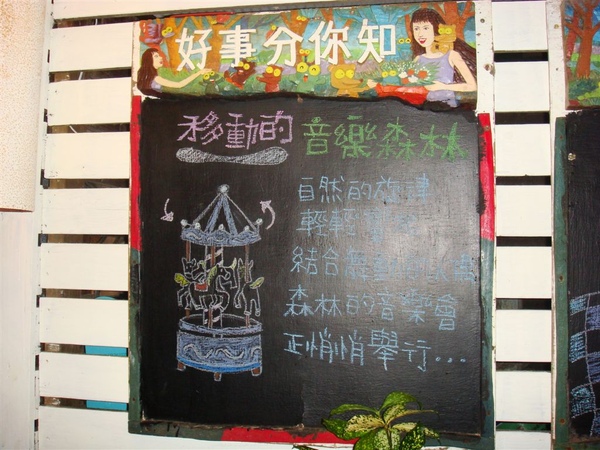 好事分你知
移動的 音樂森林
自然的旋律
輕輕響起
結合
森林的音樂會
正悄悄舉行...